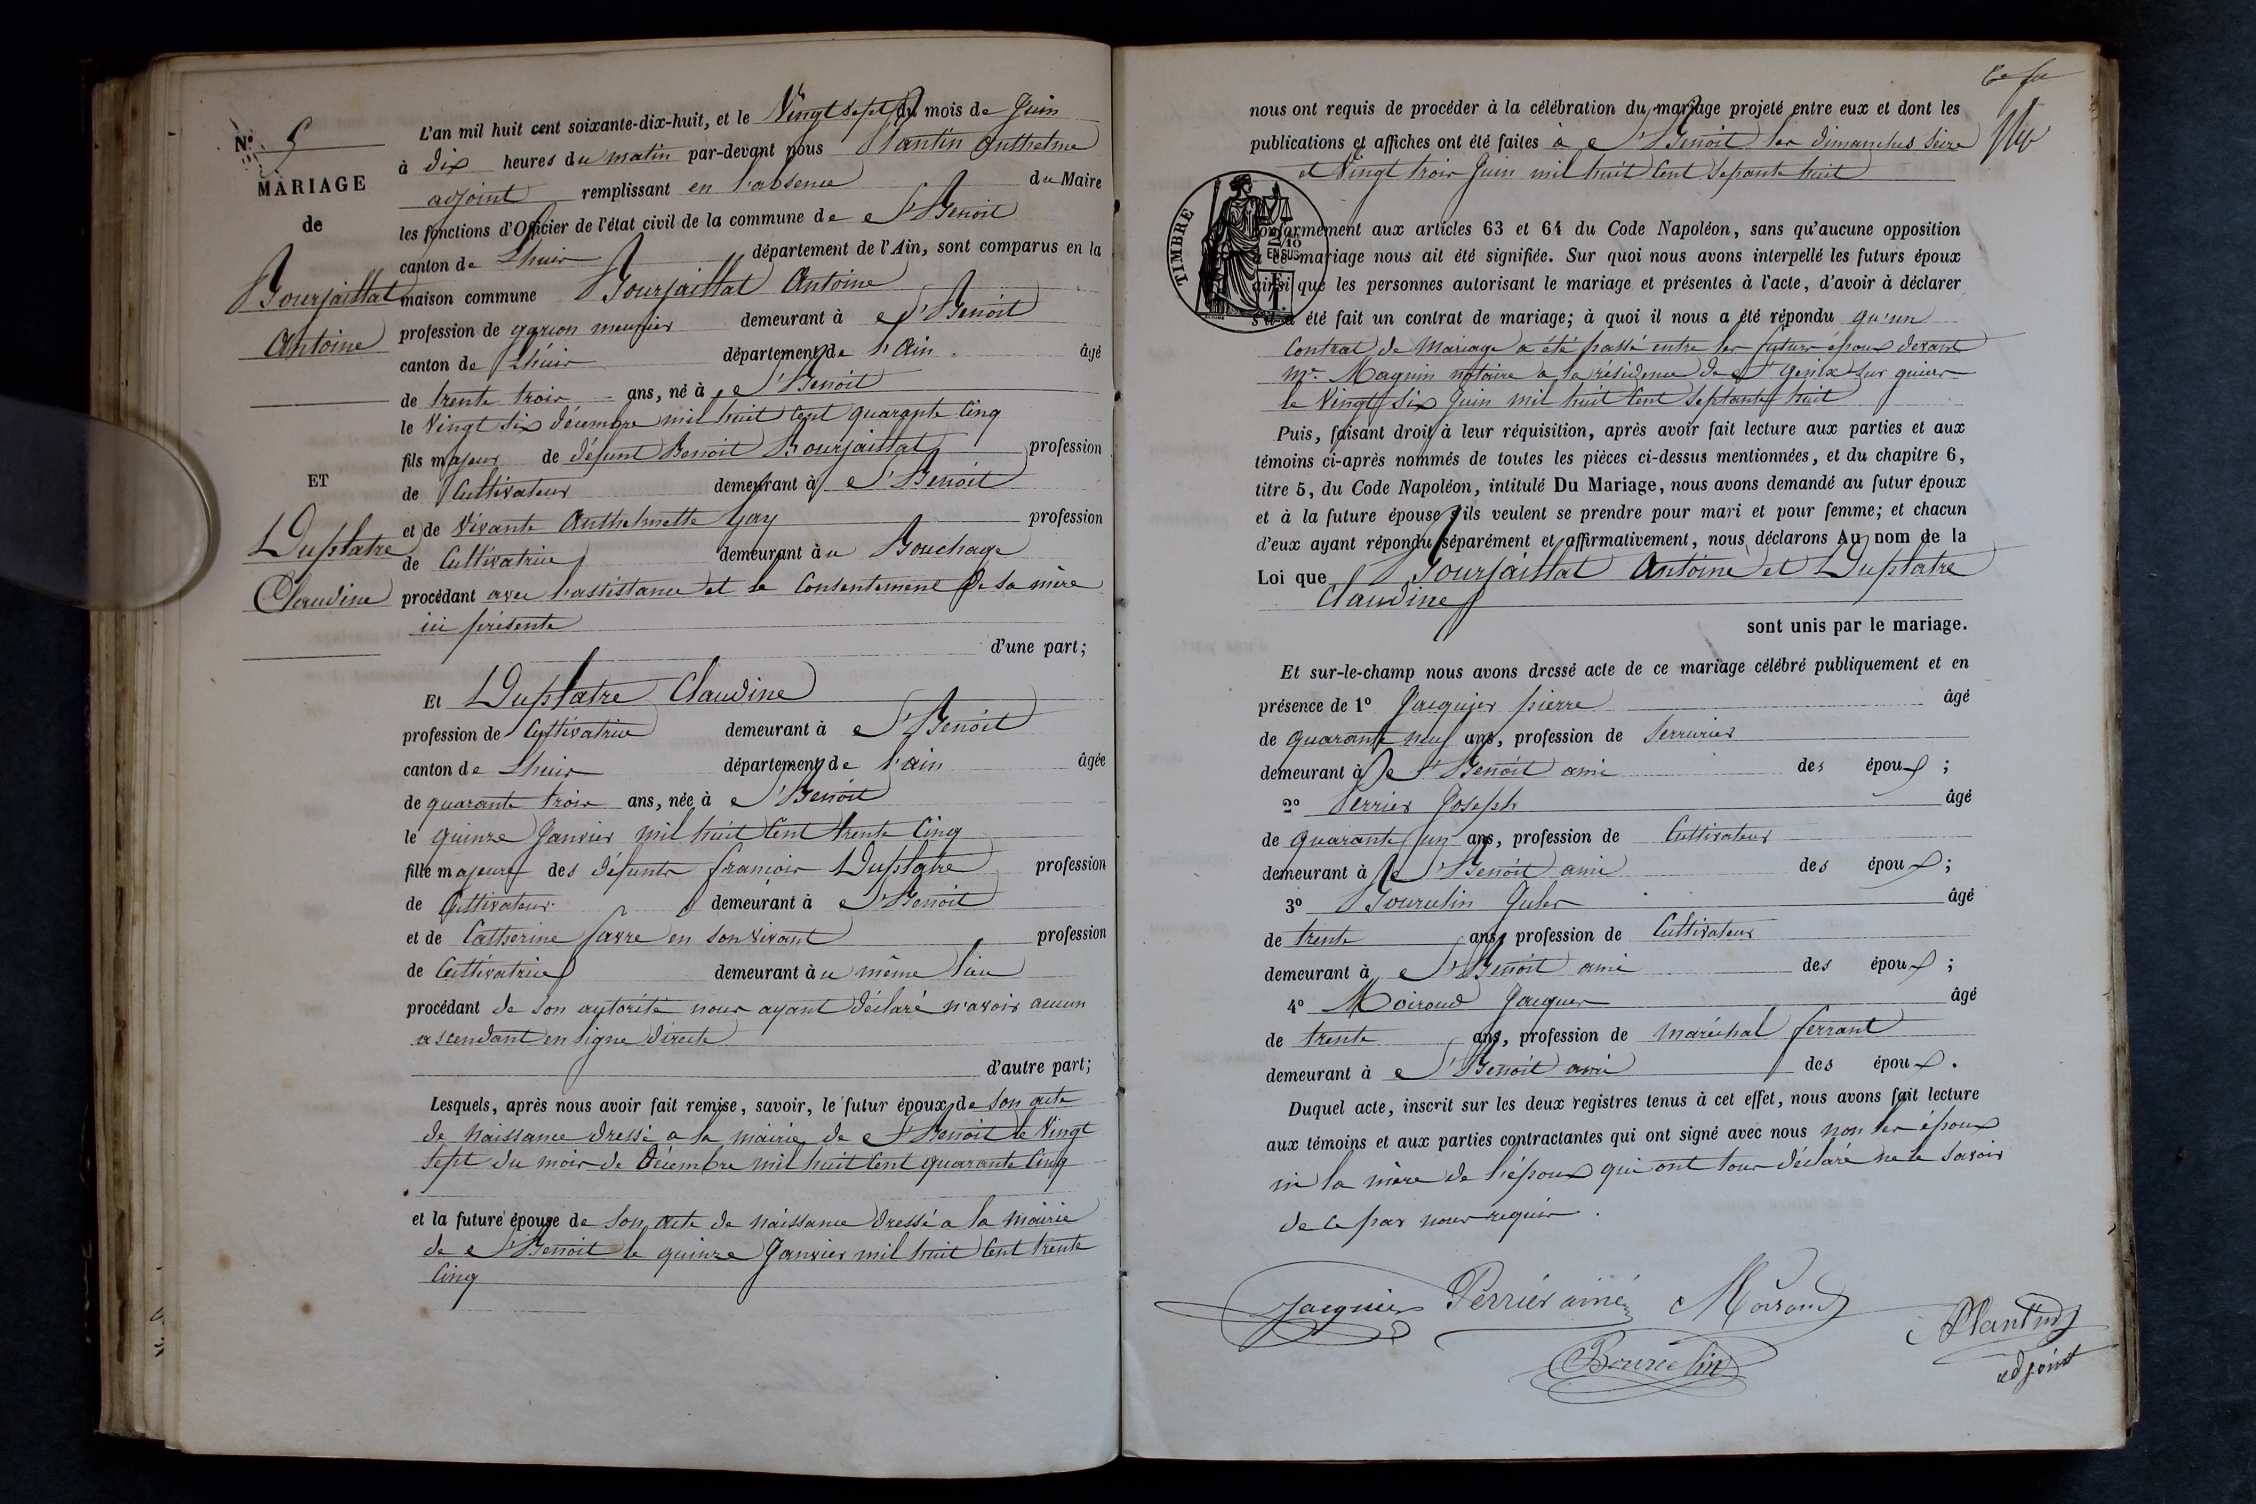 N° 5
MARIAGE
de
Bourjaillat
Antoine
ET
Duplatre
Claudine
L'an mil huit cent soixante-dix-huit, et le Vingt sept du mois de Juin
à dix heures du matin par-devant nous Plantin Anthelme
adjoint remplissant en l'absence du Maire
les fonctions d'Officier de l'état civil de la commune de St Benoit
canton de Lhuis département de l'Ain, sont comparus en la
maison commune Bourjaillat Antoine
profession de garçon meunier demeurant à St Benoit
canton de Lhuis département de l'Ain âgé
de trente trois ans, né à St Benoit
le Vingt six décembre mil huit Cent quarante Cinq
fils majeur de défunt Benoit Bourjaillat profession
de Cultivateur demeurant à St Benoit
et de vivante Anthelmette Gay profession
de Cultivatrice demeurant à u Bouchage
procédant avec l'assistance et le Consentement de sa mère
ici présente
d'une part;
Et Duplatre Claudine
profession de Cultivatrice demeurant à St Benoit
canton de Lhuis département de l'ain âgée
de quarante trois ans, née à St Benoit
le quinze Janvier mil huit Cent trente Cinq
fille majeure des défunts françois Duplatre profession
de Cultivateur demeurant à St Benoit
et de Catherine favre en son vivant profession
de Cultivatrice demeurant à u même lieu
procédant de son autorité nous ayant déclaré n'avoir aucun
ascendant en ligne directe
d'autre part;
Lesquels, après nous avoir fait remise, savoir, le futur époux, de son acte
de Naissance dressé a la mairie de St Benoit le Vingt
sept du mois de Décembre mil huit Cent quarante Cinq
et la future épouse de son acte de naissance dressé a la mairie
de St Benoit le quinze Janvier mil huit Cent trente
Cinq
nous ont requis de procéder à la célébration du mariage projeté entre eux et dont les
publications et affiches ont été faites à St Benoit les dimanches seize
et Vingt trois Juin mil huit Cent septante huit
TIMBRE
2/10
EN SUS
conformément aux articles 63 et 64 du Code Napoléon, sans qu'aucune opposition
à ce mariage nous ait été signifiée. Sur quoi nous avons interpellé les futurs époux
ainsi que les personnes autorisant le mariage et présentes à l'acte, d'avoir à déclarer
s'il a été fait un contrat de mariage; à quoi il nous a été répondu qu'un
Contrat de Mariage a été passé entre les futurs époux devant
Me Magnin notaire a la résidence de St Genix sur guier
le Vingt six Juin mil huit Cent Septante huit
Puis, faisant droit à leur réquisition, après avoir fait lecture aux parties et aux
témoins ci-après nommés de toutes les pièces ci-dessus mentionnées, et du chapitre 6,
titre 5, du Code Napoléon, intitulé Du Mariage, nous avons demandé au futur époux
et à la future épouse s'ils veulent se prendre pour mari et pour femme; et chacun
d'eux ayant répondu séparément et affirmativement, nous déclarons Au nom de la
Loi que Bourjaillat Antoine et Duplatre
Claudine
sont unis par le mariage.
Et sur-le-champ nous avons dressé acte de ce mariage célébré publiquement et en
présence de 1° Jacquier pierre âgé
de quarante neuf ans, profession de Serrurier
demeurant à St Benoit ami des époux ;
2° Perrier Joseph âgé
de quarante un ans, profession de Cultivateur
demeurant à St Benoit ami des époux ;
3° Bourcelin Jules âgé
de trente ans, profession de Cultivateur
demeurant à St Benoit ami des époux ;
4° Moiroud Jacques âgé
de trente ans, profession de maréchal ferrant
demeurant à St Benoit ami des époux .
Duquel acte, inscrit sur les deux registres tenus à cet effet, nous avons fait lecture
aux témoins et aux parties contractantes qui ont signé avec nous non les époux
ni la mère de l'époux qui ont tous déclaré ne le savoir
de ce par nous requis .
Jacquier Perrier ainé Moiroud
Plantin
Bourcelin
adjoint